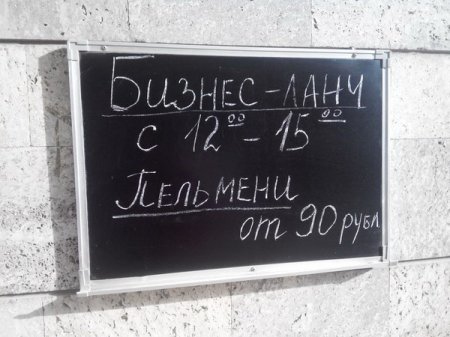 Бизнес-ланч
с 12⁰⁰-15⁰⁰
Пельмени
от 90 рубл